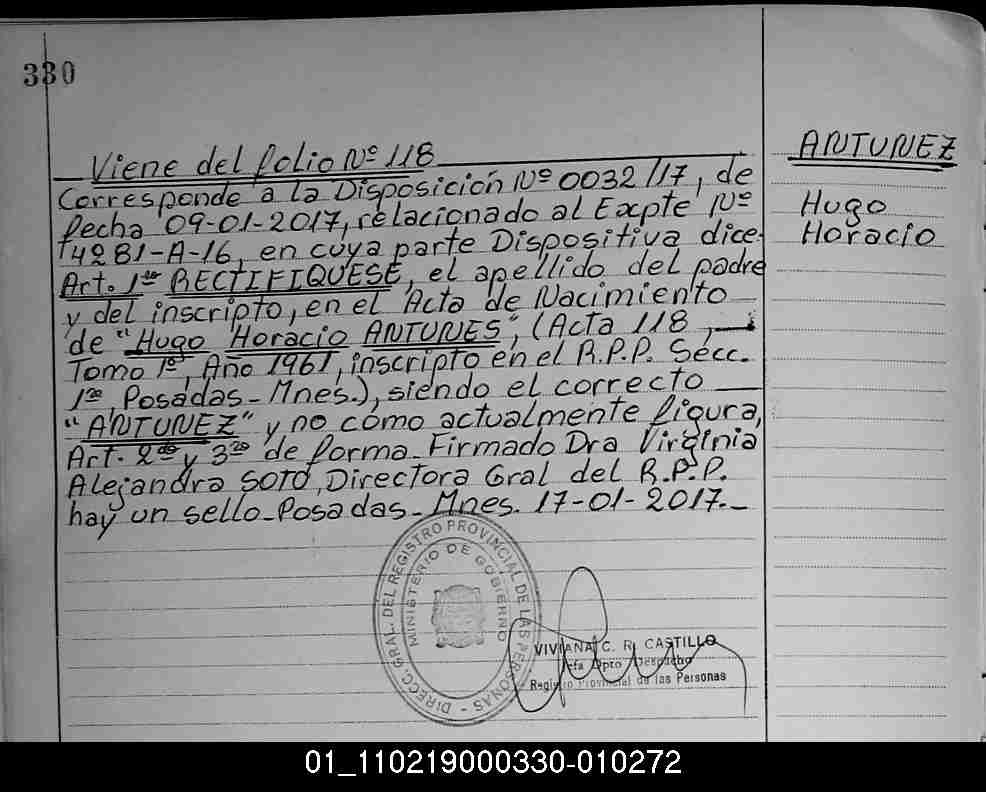 330
Viene del folio Nº 118
Corresponde a la Disposición Nº 0032/17, de
fecha 09-01-2017, relacionado al Expte Nº
14281-A-16, en cuya parte Dispositiva dice:
Art. 1ro RECTIFIQUESE, el apellido del padre
y del inscripto, en el Acta de Nacimiento
de "Hugo Horacio ANTUNES", (Acta 118,
Tomo 1º, Año 1961, inscripto en el R.P.P. Secc.
1ra Posadas-Mnes.), siendo el correcto
"ANTUNEZ" y no como actualmente figura,
Art. 2do y 3ro de forma-Firmado Dra Virginia
Alejandra SOTO, Directora Gral del R.P.P.
hay un sello-Posadas-Mnes. 17-01-2017.-
ANTUNEZ
Hugo
Horacio
DIRECC. GRAL. DEL REGISTRO PROVINCIAL DE LAS PERSONAS -
MINISTERIO DE GOBIERNO
VIVIANA C. R. CASTILLO
Jefa Dpto Despacho
Registro Provincial de las Personas
01_110219000330-010272